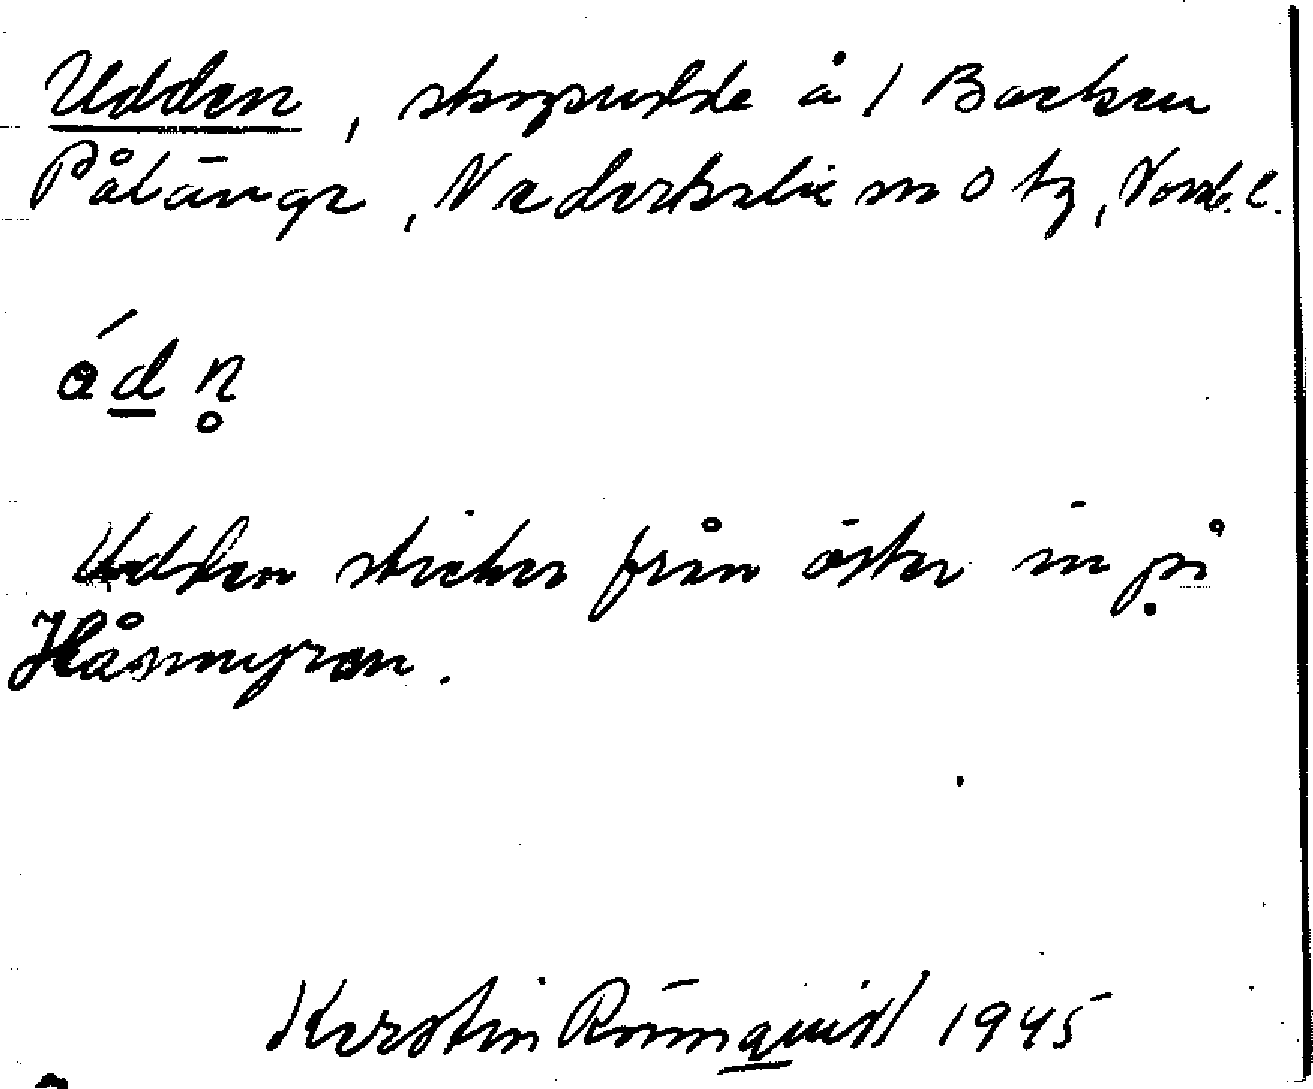 Udden, skogsudde å 1 Backen
Pålänge, Nederkalix sn o tg, Norrb. l.
ádn̥
Udden sticker från öster in på
Håsmyran.
Kerstin Rönnquist 1945